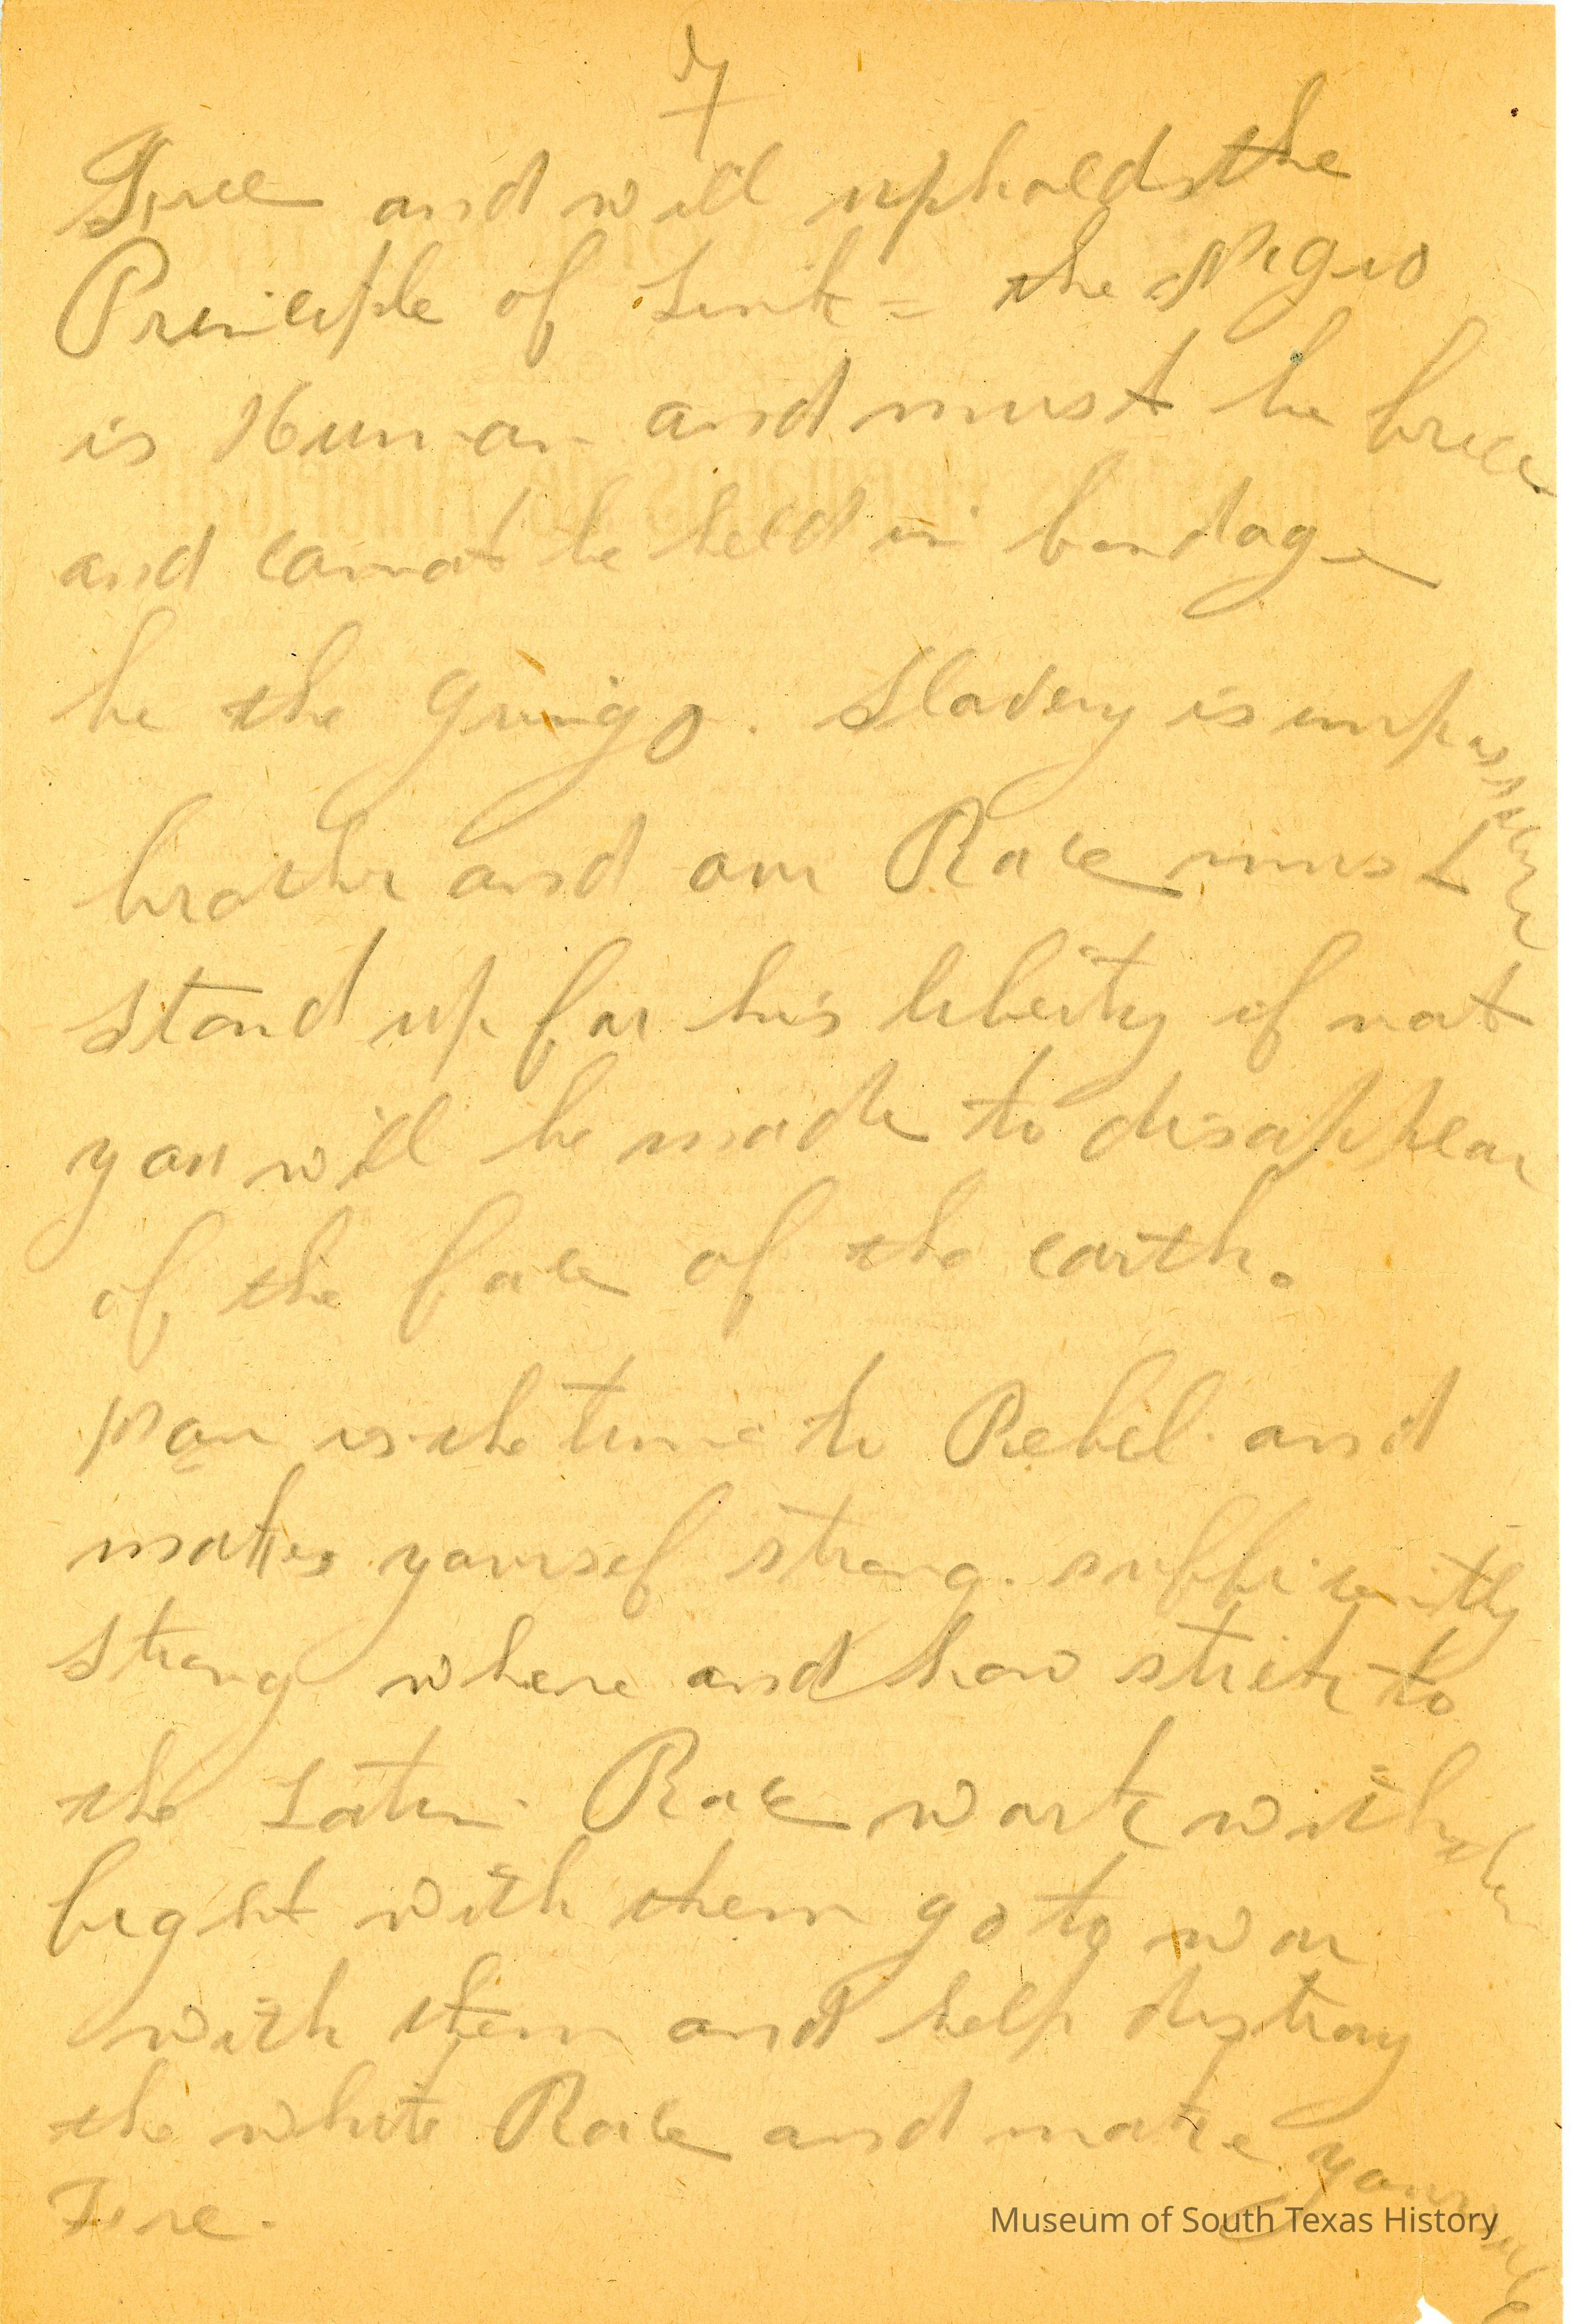 7
Free and will uphold the
Principle of Link = the Negro
is Human and must be free
and cannot be held in bondage
be the Gringo. Slavery is impossible
brother and our Race must
stand up for his liberty if not
you will be made to disappear
of the face of the earth.
Now is the time to Rebel. and
make yourself strong. sufficiently
strong where and how stick to
the Latin Race work with them
fight with them go to war
with them and help distroy
the white Race and make yourself
Free.
Museum of South Texas History